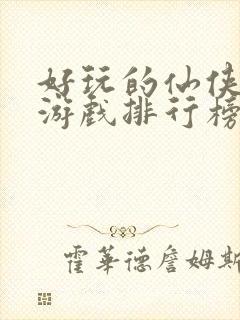 好玩的仙侠
游戏排行榜
霍華德詹姆斯